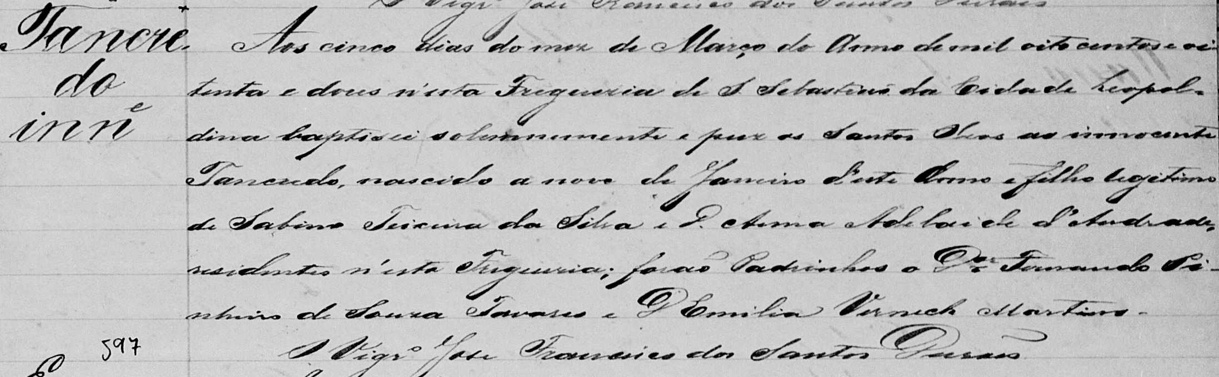 O Vigrº José Francisco dos Santos Durães
Tancre
do
innᵉ
Aos cinco dias do mez de Março do Anno de mil oito centos e oi-
tenta e dous n'esta Freguezia de S Sebastiaõ da Cidade Leopol-
dina baptisei solemnemente e puz os Santos Oleos ao innocente
Tancredo, nascido a nove de Janeiro d'este Anno e filho legitimo
de Sabino Teixeira da Silva e D. Anna Adelaide d'Andrade,
residentes n'esta Freguezia; foraõ Padrinhos o Dr. Fernando Pi-
nheiro de Souza Tavares e D Emilia Verneck Martins.
O Vigrº José Francisco dos Santos Durães
597